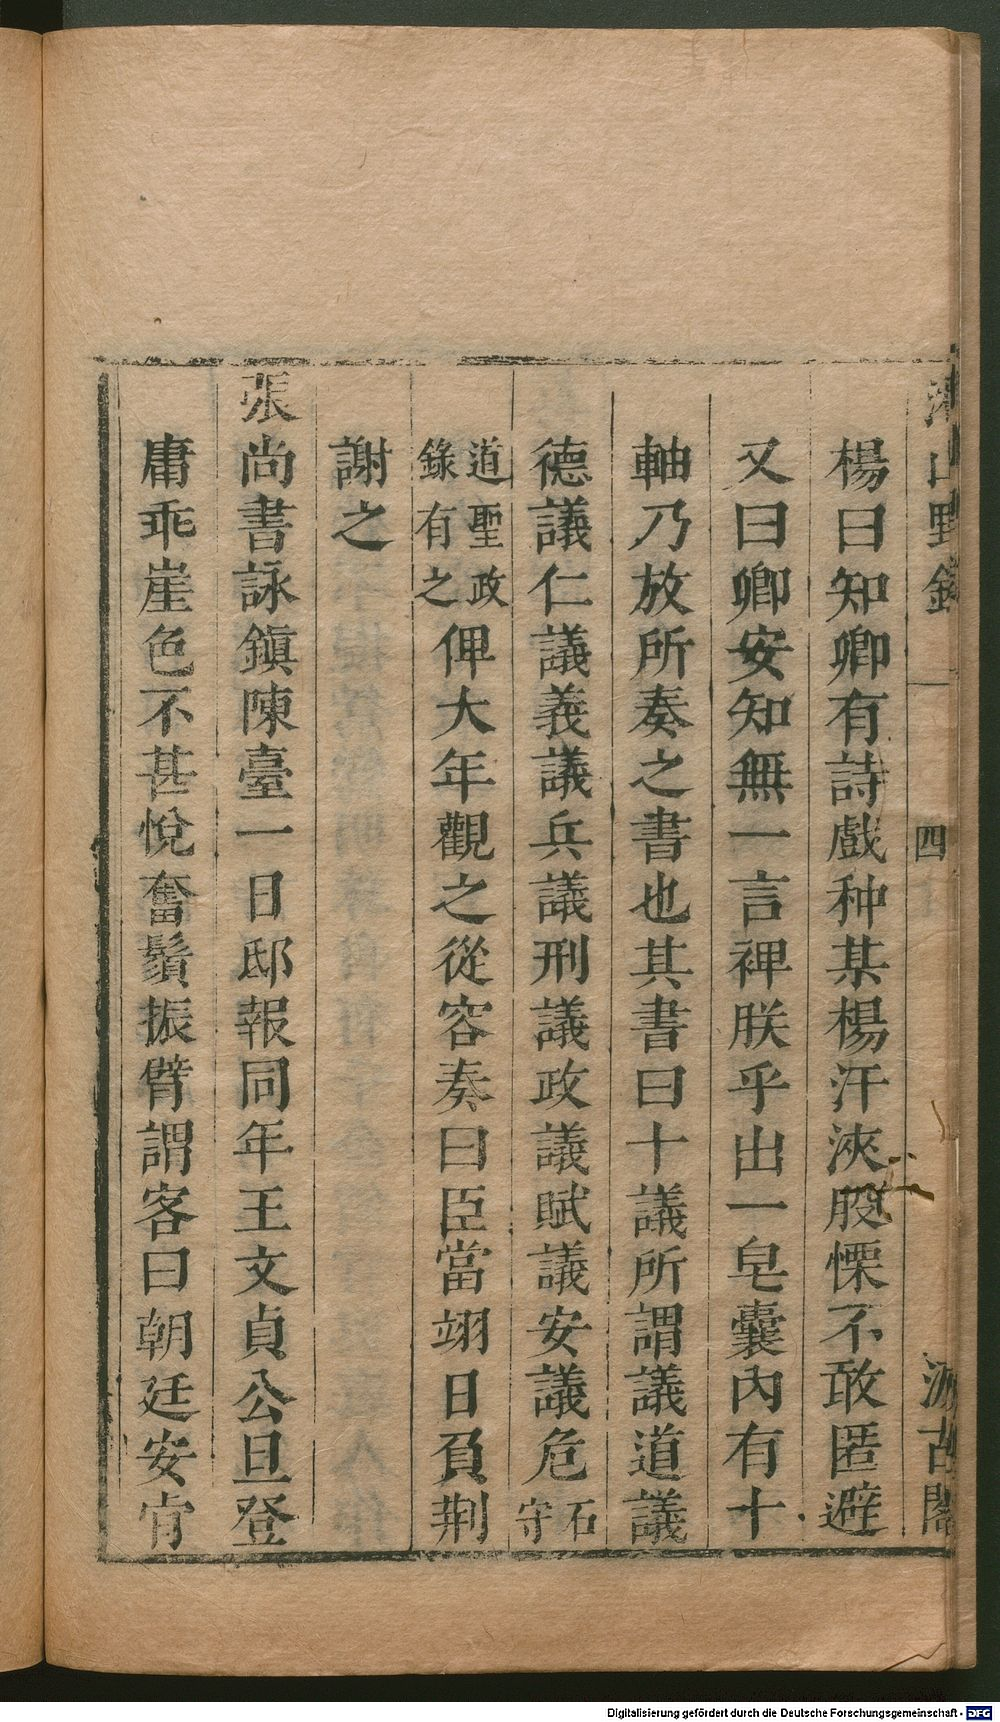 湘山野錄
四
汲古閣
楊曰知卿有詩戲种某楊汗浹股慄不敢匿避
又曰卿安知無一言裨朕乎出一皂囊內有十
軸乃放所奏之書也其書曰十議所謂議道議
德議仁議義議兵議刑議政議賦議安議危石守
道聖政錄有之俾大年觀之從容奏曰臣當翊日負荆
謝之
張尚書詠鎮陳臺一日邸報同年王文貞公旦登
庸乖崖色不甚悅奮鬚振臂謂客曰朝廷安肯
Digitalisierung gefördert durch die Deutsche Forschungsgemeinschaft - DFG